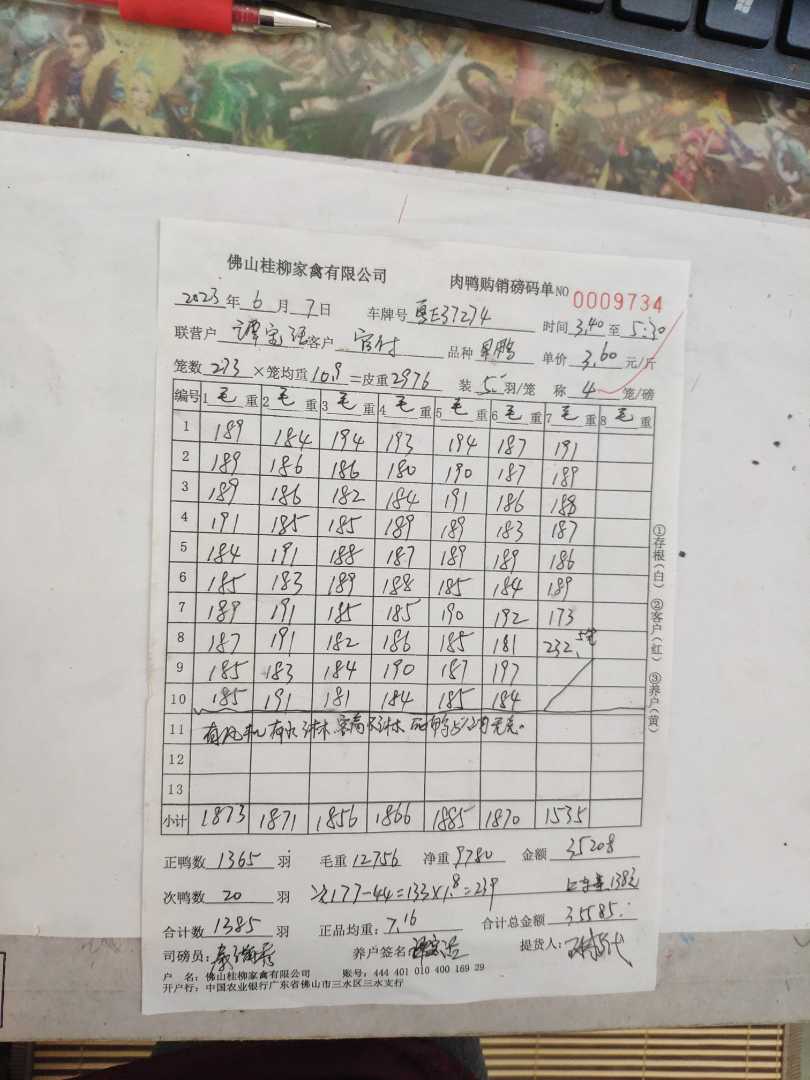 佛山桂柳家禽有限公司 肉鸭购销磅码单NO 0009734
2023年6月7日 车牌号粤E37274 时间3.40至5:30
联营户 谭 客户 官付 品种 单价3.60元/斤
笼数273×笼均重10.9=皮重2976 装5羽/笼 称4笼/磅
编号 1毛重 2毛重 3毛重 4毛重 5毛重 6毛重 7毛重 8毛重
1 189 184 194 193 194 187 191
2 189 186 186 180 190 187 189
3 189 186 182 184 191 186 188
4 191 185 185 189 189 183 187
5 184 191 188 187 189 189 186
6 185 183 189 188 185 184 189
7 189 191 185 185 190 192 173
8 187 191 182 186 185 181 232 5笼
9 185 183 184 190 187 197
10 185 191 181 184 185 184
11
12
13
小计 1873 1871 1856 1866 1885 1870 1535
①存根(白) ②客户(红) ③养户(黄)
正鸭数1365羽 毛重12756 净重9780 金额35208
次鸭数20羽 次177-44=133×1.8=239 138
合计数1385羽 正品均重:7.16 合计总金额35585
司磅员: 养户签名: 提货人:
户 名:佛山桂柳家禽有限公司 账号:444 401 010 400 169 29
开户行:中国农业银行广东省佛山市三水区三水支行